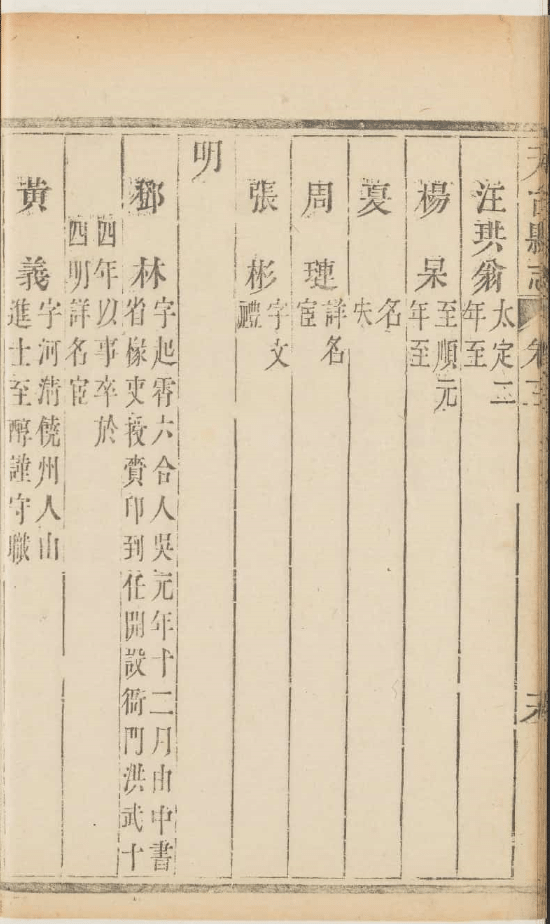 天台縣志 卷三
汪珙翁 太定二年至
楊杲 至順元年至
夏 名失
周璉 詳名宦
張彬 字文禮
明
鄧林 字起霄六合人吳元年十二月由中書省椽吏授賫印到任開設衙門洪武十
四年以事卒於四明詳名宦
黃義 字河淸饒州人由進士至醇謹守職